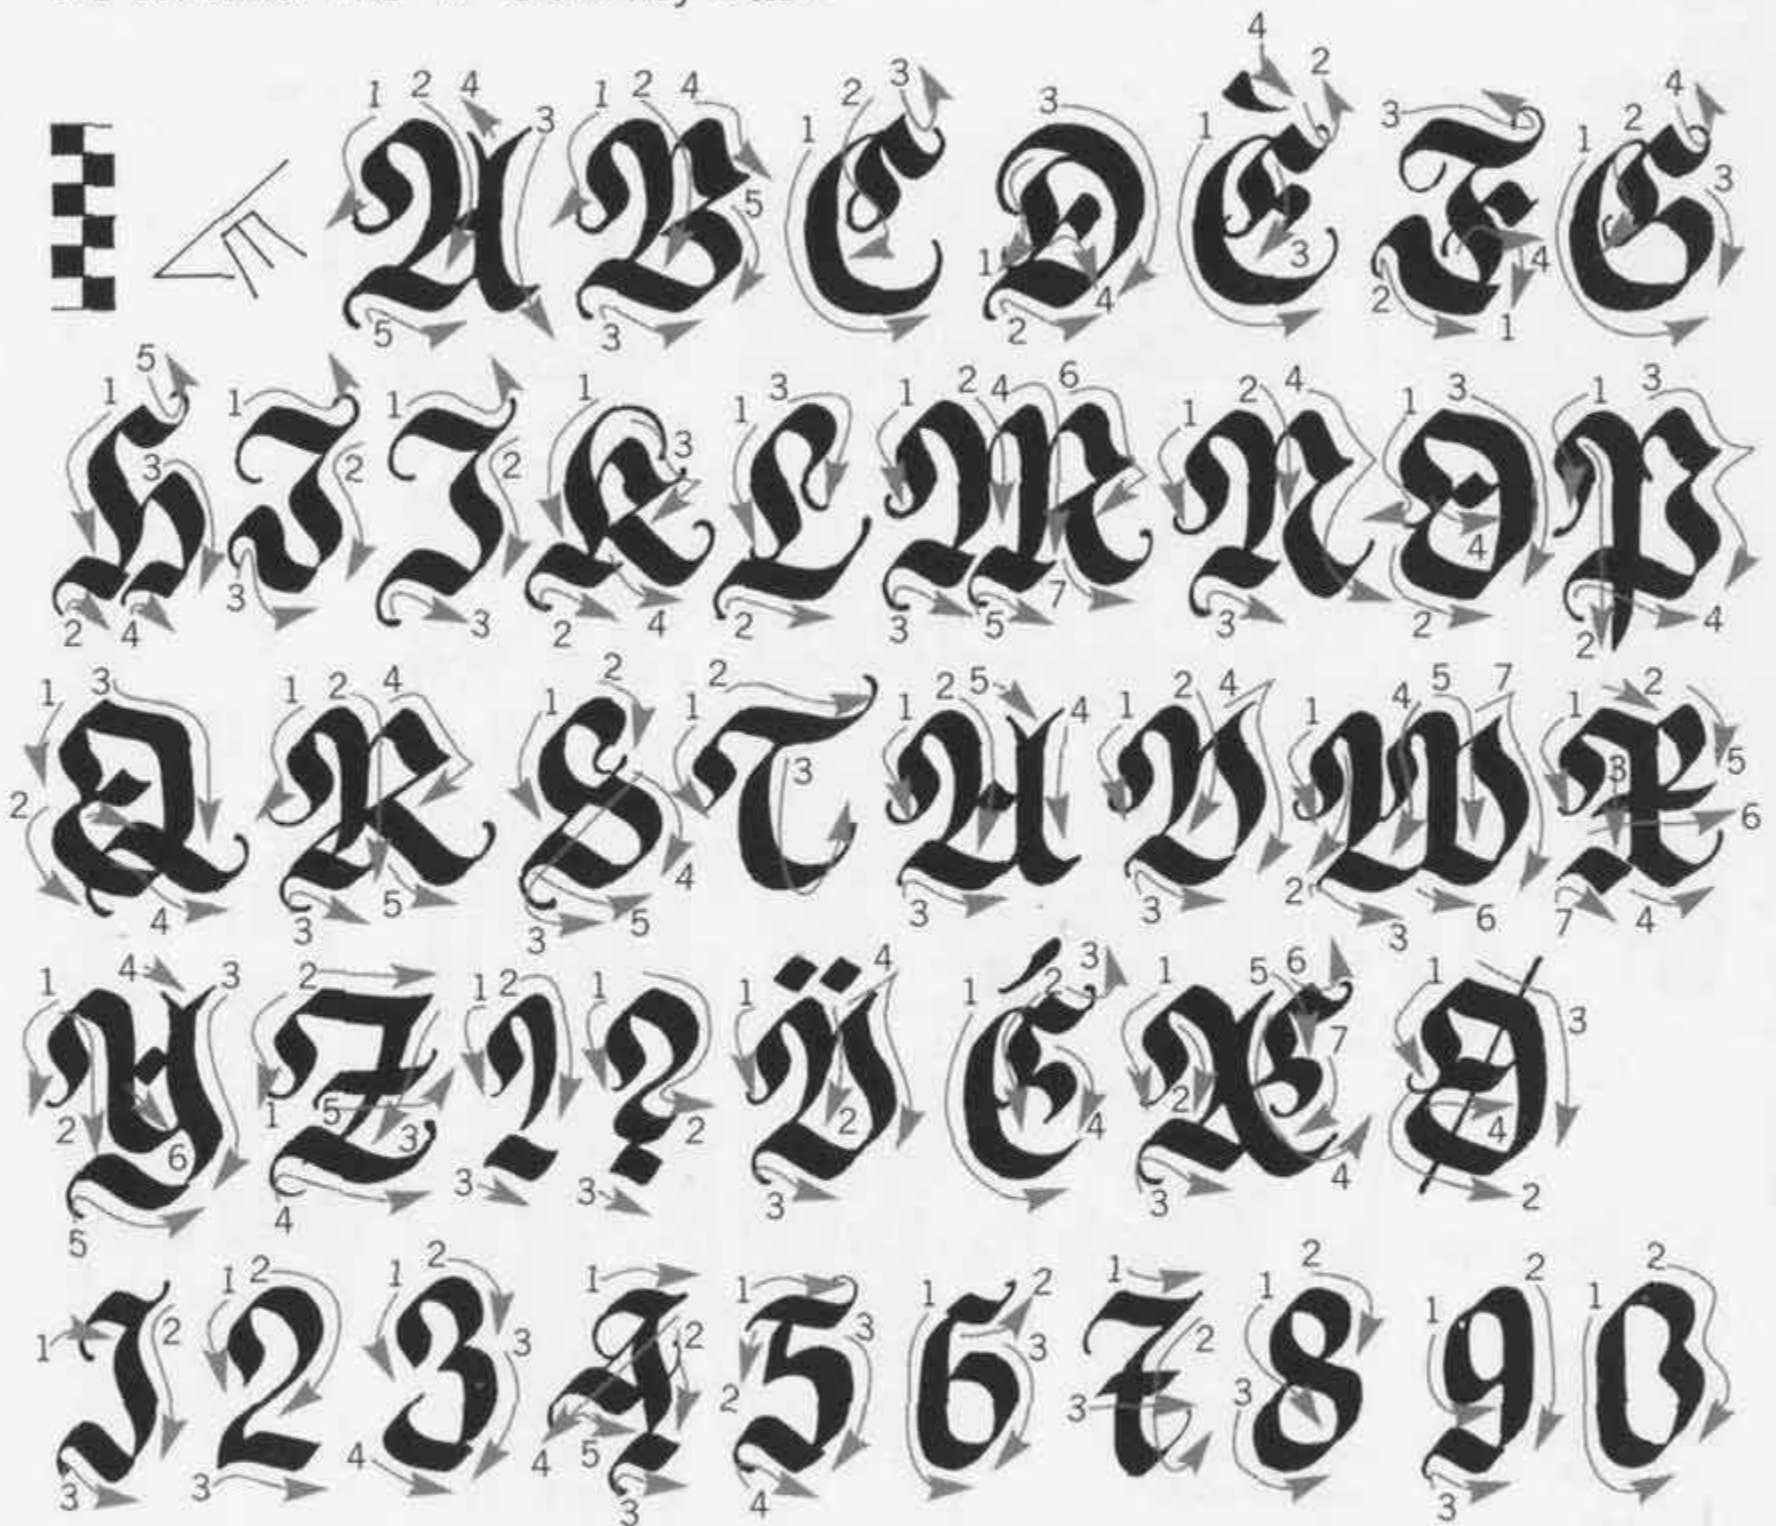 A B C D È F G
H I J K L M N O P
Q R S T U V W X
Y Z ! ? Ü É Æ Ø
1 2 3 4 5 6 7 8 9 0